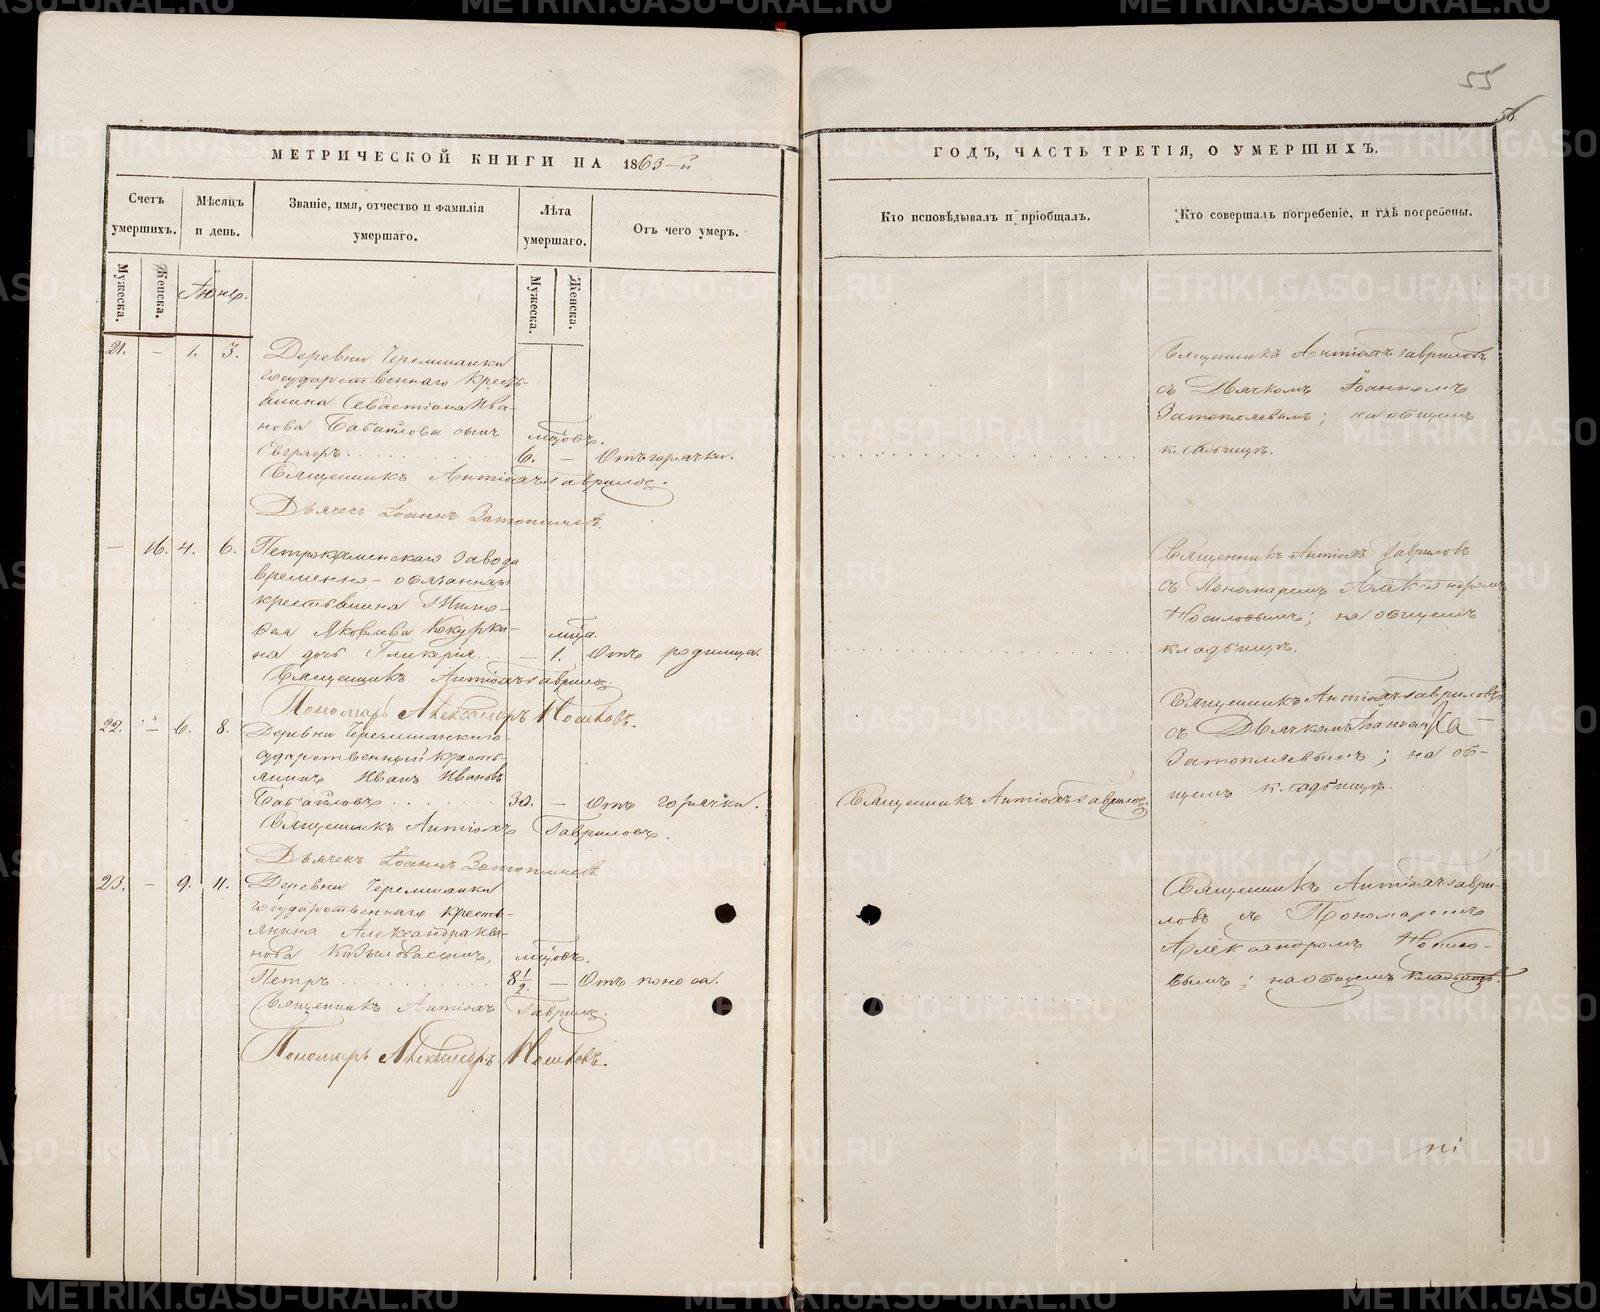 55
56.
МЕТРИЧЕСКОЙ КНИГИ НА 1863-й
ГОДЪ, ЧАСТЬ ТРЕТІЯ, О УМЕРШИХЪ.
Счетъ умершихъ.
Мѣсяцъ и день.
Званіе, имя, отчество и фамилія умершаго.
Лѣта умершаго.
Отъ чего умеръ.
Кто исповѣдывалъ и пріобщалъ.
Кто совершалъ погребеніе, и гдѣ погребены.
Мужеска.
Женска.
Іюнь.
Мужеска.
Женска.
21. — 1. 3. Деревни Черемшанки
государственнаго кресть-
янина Севастіана Ива-
нова Бабайлова сынъ мцовъ.
Евграфъ. 6. — Отъ горячки.
Священникъ Антіохъ Гавриловъ.
Дьячекъ Іоаннъ Затопляевъ.
Священникъ Антіохъ Гавриловъ
съ Дьячкомъ Іоанномъ
Затопляевымъ; на общемъ
кладбищѣ.
— 16. 4. 6. Петрокаменскаго завода
временно-обязаннаго
крестьянина
Яковлева Кокурки- мца.
на дочь Гликерія. — 1. Отъ родимца.
Священникъ Антіохъ Гавриловъ.
Пономарь Александръ Носиловъ.
Священникъ Антіохъ Гавриловъ
съ Пономаремъ Александромъ
Носиловымъ; на общемъ
кладбищѣ.
22. — 6. 8. Деревни Черемшанки го-
сударственный кресть-
янинъ Иванъ Ивановъ
Бабайловъ 30. — Отъ горячки.
Священникъ Антіохъ Гавриловъ.
Дьячекъ Іоаннъ Затопляевъ.
Священникъ Антіохъ Гавриловъ.
Священникъ Антіохъ Гавриловъ
съ Дьячкомъ Іоанномъ За-
Затопляевымъ; на об-
щемъ кладбищѣ.
23. — 9. 11. Деревни Черемшанки
государственнаго кресть-
янина Александра Ива-
нова сынъ, мцовъ.
Петръ 8 1/2. — Отъ поноса.
Священникъ Антіохъ Гавриловъ.
Пономарь Александръ Носиловъ.
Священникъ Антіохъ Гаври-
ловъ съ Пономаремъ
Александромъ Носило-
вымъ; на общемъ кладбищѣ.
METRIKI.GASO-URAL.RU